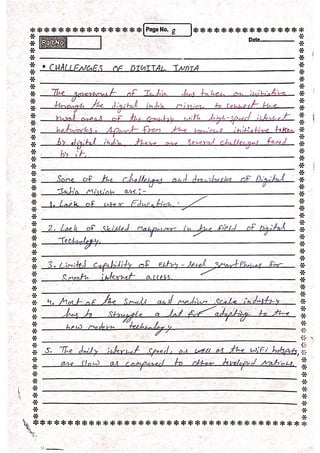 Page No. 8
Date
• CHALLENGES OF DIGITAL INDIA
The government of India has taken an initiative
through the digital india mission to connect the
rural areas of the country with high-speed internet
networks. Apart from the various initiative taken
by digital india there are several challenges faced
by it.
Some of the challenges and drawbacks of Digital
India Mission are :-
1. Lack of user Education.
2. Lack of skilled manpower in the field of Digital
Technology.
3. Limited capability of entry-level smartphones for
smooth internet access.
4. Most of the small and medium scale industry
has to struggle a lot for adapting to the
new modern technology.
5. The daily internet speed, as well as the wifi hotspots,
are slow as compared to other developed nations.